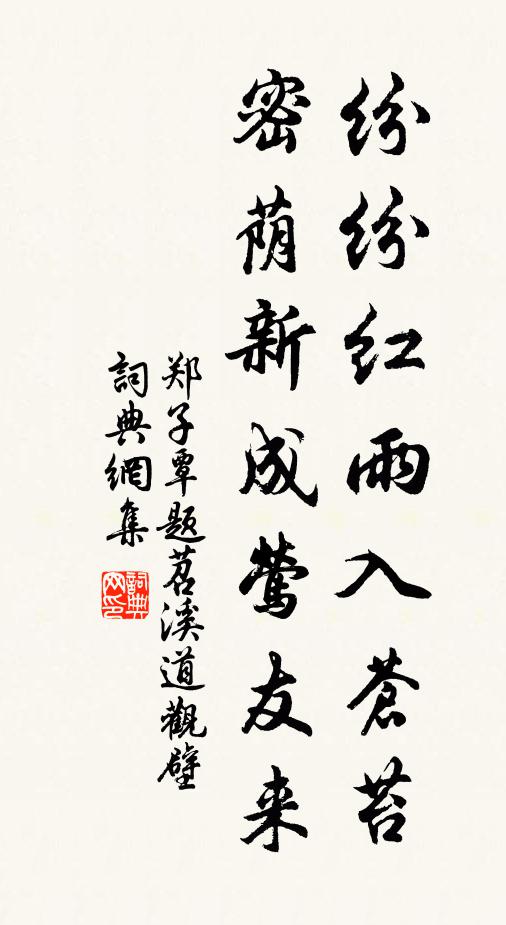 纷纷红雨入蒼苔
密荫新成莺友来
郑子覃题苕溪道觀壁
詞典網集
詞典网印